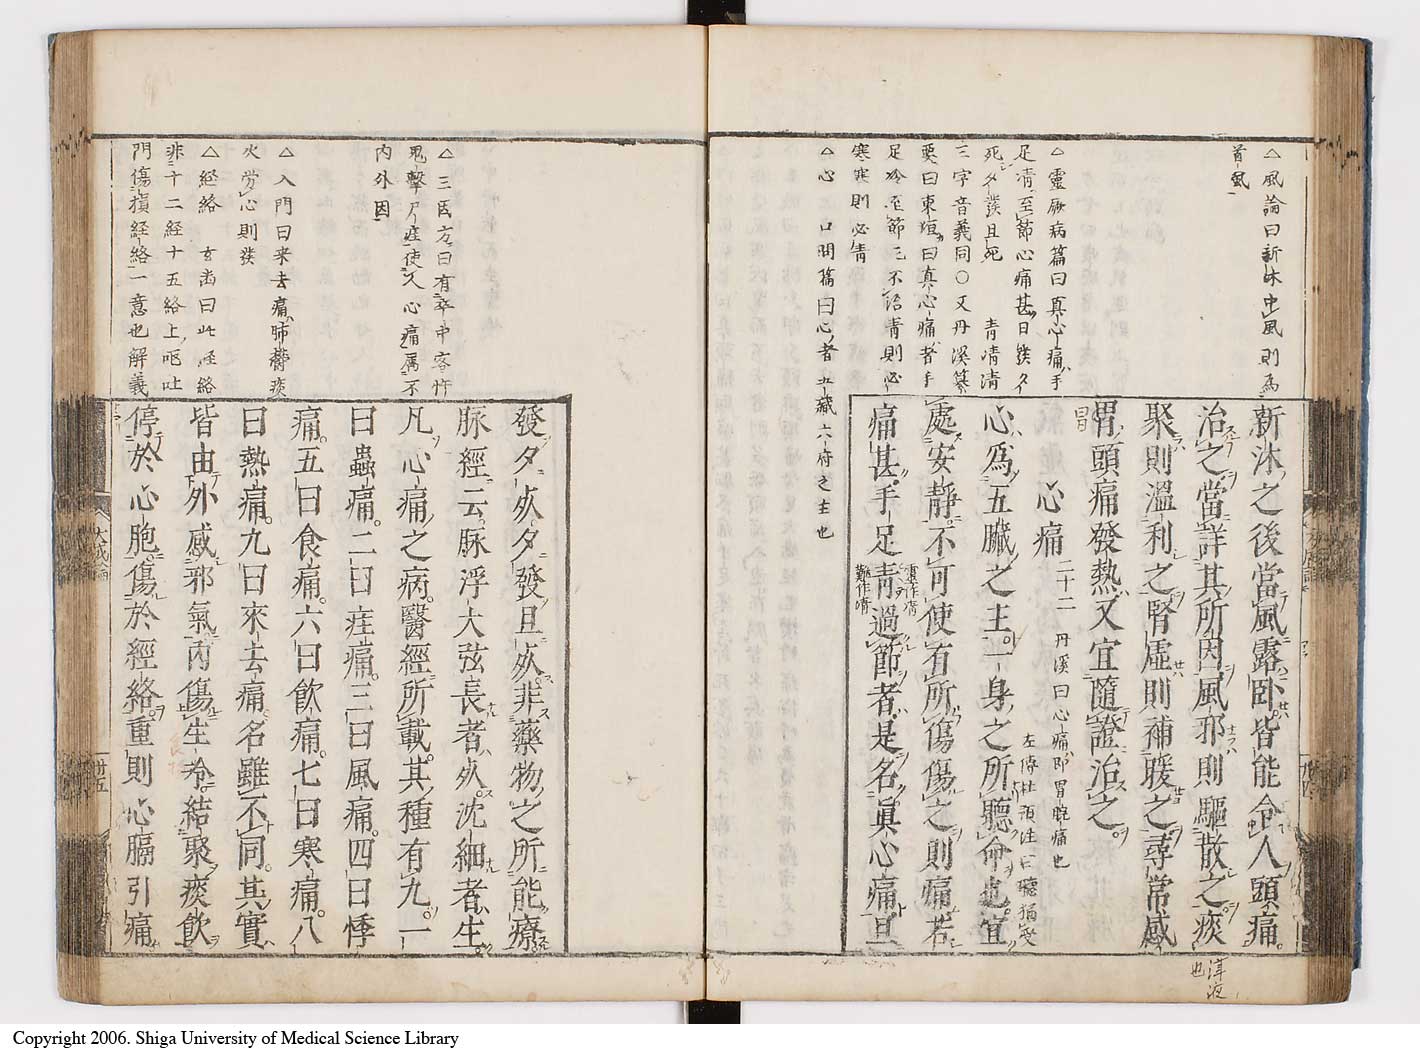 △風論曰新沐中風則為
首風
△靈厥病篇曰真心痛手
足凊至節心痛甚旦発夕
死夕発旦死
青凊清
三字音義同〇又丹溪纂
要曰東垣曰真心痛者手
足冷至節
寒寒則必青
△心
口問篇曰心者五藏六府之主也
新沐之後當風露卧皆能令人頭痛
治之當詳其所因風邪則驅散之痰
聚則溫利之腎虛則補暖之尋常感
冒頭痛發熱又宜隨證治之
冒
心痛
二十二
丹溪曰心痛即胃脘痛也
心為五臟之主一身之所聽命也宜
左傳杜預注曰聽猶受
處安靜不可使有所傷傷之則痛若
痛甚手足青過節者是名真心痛旦
靈作凊
難作凊
津液
也
△三因方曰有卒中客忤
鬼擊尸疰使人心痛属不
内外因
△入門曰来去痛肺鬱痰
火労心則発
△経絡
玄臺曰此経絡
非十二経十五絡上嘔吐
門傷損経絡一意也解義
發夕死夕發旦死非藥物之所能療
脉經云脉浮大弦長者死沈細者生
凡心痛之病醫經所載其種有九一
曰蟲痛二曰疰痛三曰風痛四曰悸
痛五曰食痛六曰飲痛七曰寒痛八
曰熱痛九曰來去痛名雖不同其實
皆由外感邪氣内傷生冷結聚痰飲
停於心胞傷於經絡重則心膈引痛
大成論
卅五
Copyright 2006. Shiga University of Medical Science Library